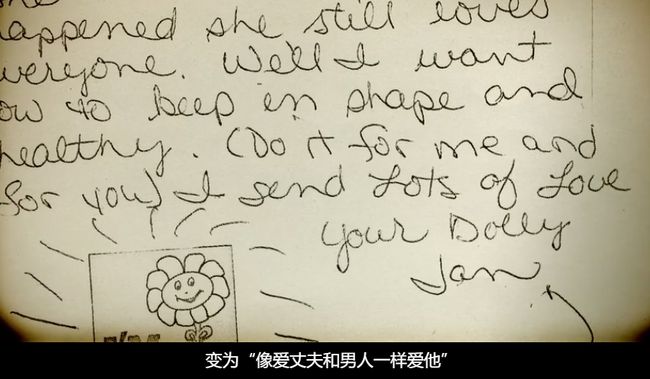 happened she still loves
veryone. Well I want
ow to keep in shape and
healthy. (Do it for me and
for you) I send Lots of Love
Your Dolly
Jan
变为“像爱丈夫和男人一样爱他”